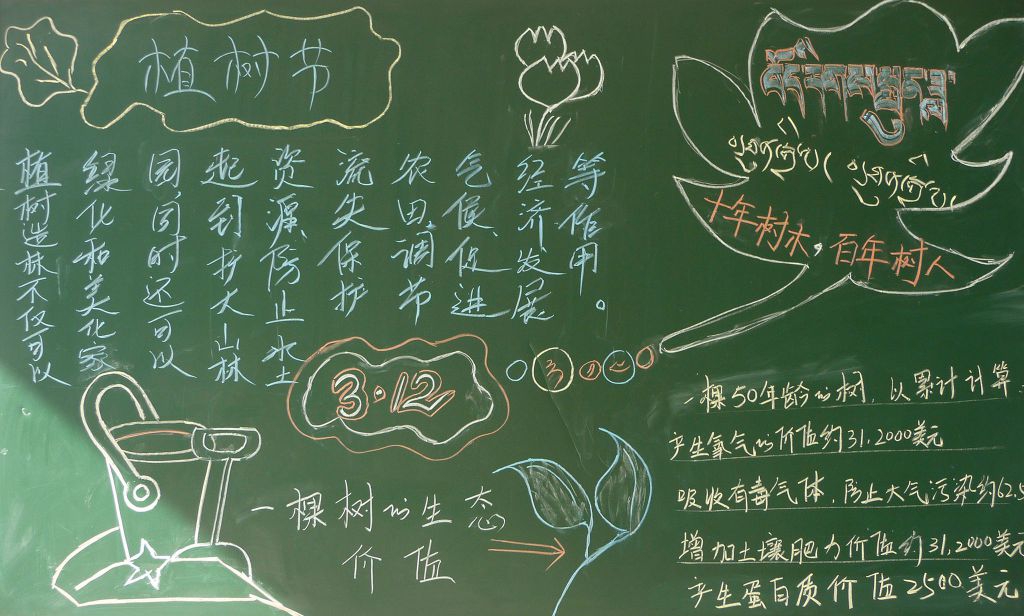 植树节
植树造林不仅可以
绿化和美化家
园,同时还可以
起到扩大山林
资源、防止水土
流失保护
农田、调节
气候、促进
经济发展
等作用。
十年树木，百年树人
3·12
一棵树的生态
价值
一棵50年龄的树，以累计计算.
产生氧气的价值约31.2000美元
吸收有毒气体，防止大气污染约62.5
增加土壤肥力价值约31,2000美元
产生蛋白质价值2500美元